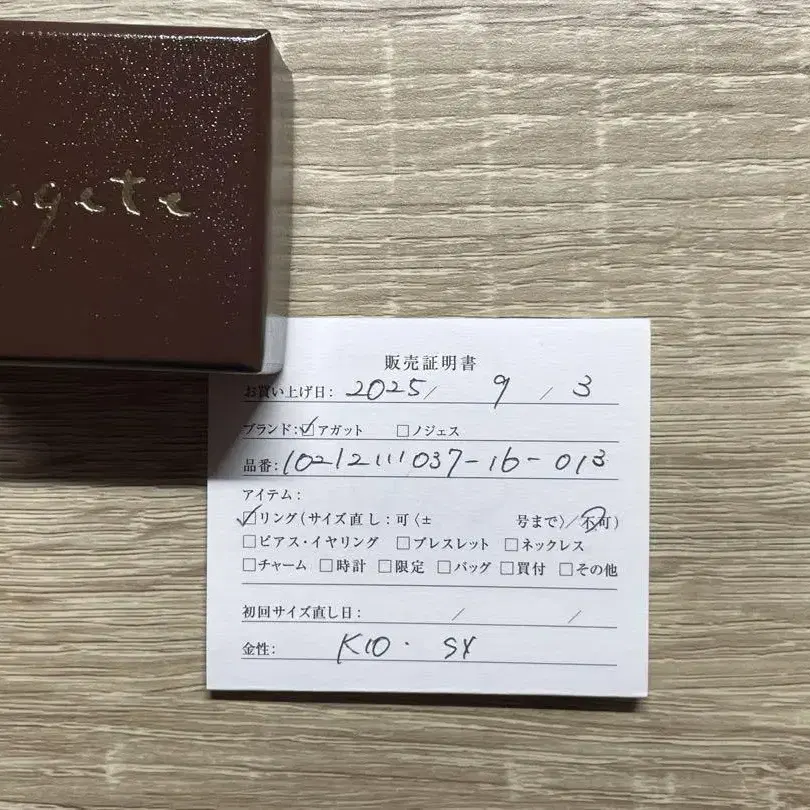 agete
販売証明書
お買い上げ日: 2025/ 9 / 3
ブランド: ☑アガット □ノジェス
品番: 10212111037-16-013
アイテム:
☑リング(サイズ直し:可〈± 号まで〉/不可)
□ピアス・イヤリング □ブレスレット □ネックレス
□チャーム □時計 □限定 □バッグ □買付 □その他
初回サイズ直し日: / /
金性: K10 · SX